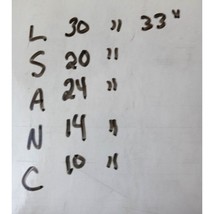 L 30 " 33"
S 20 "
A 24 "
N 14 "
C 10 "